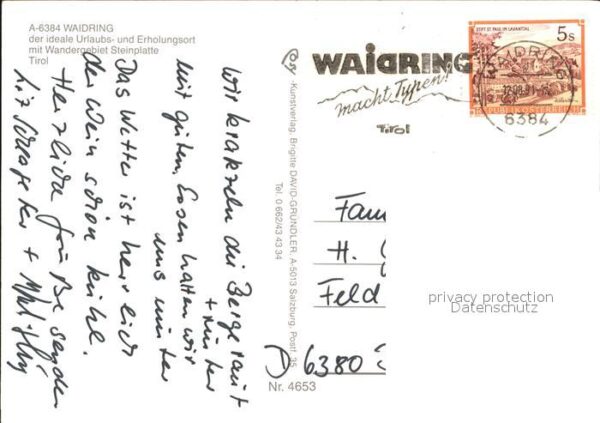 A-6384 WAIDRING
der ideale Urlaubs- und Erholungsort
mit Wandergebiet Steinplatte
Tirol
Wir kraxeln die Berge rauf
+ runter
mit guten Essen halten wir
uns munter
Das Wetter ist herrlich
der Wein schön kühl.
Herzliche Grüße senden
Kunstverlag, Brigitte DAVID-GRÜNDLER, A-5013 Salzburg, Postf. 35
Tel. 0 662/43 43 34
WAIDRING
macht Typen!
Tirol
STIFT ST. PAUL IM LAVANTTAL
5 S
REPUBLIK ÖSTERREICH
WAIDRING
6384
Fam
H.
Feld
D 6380
Nr. 4653
privacy protection
Datenschutz